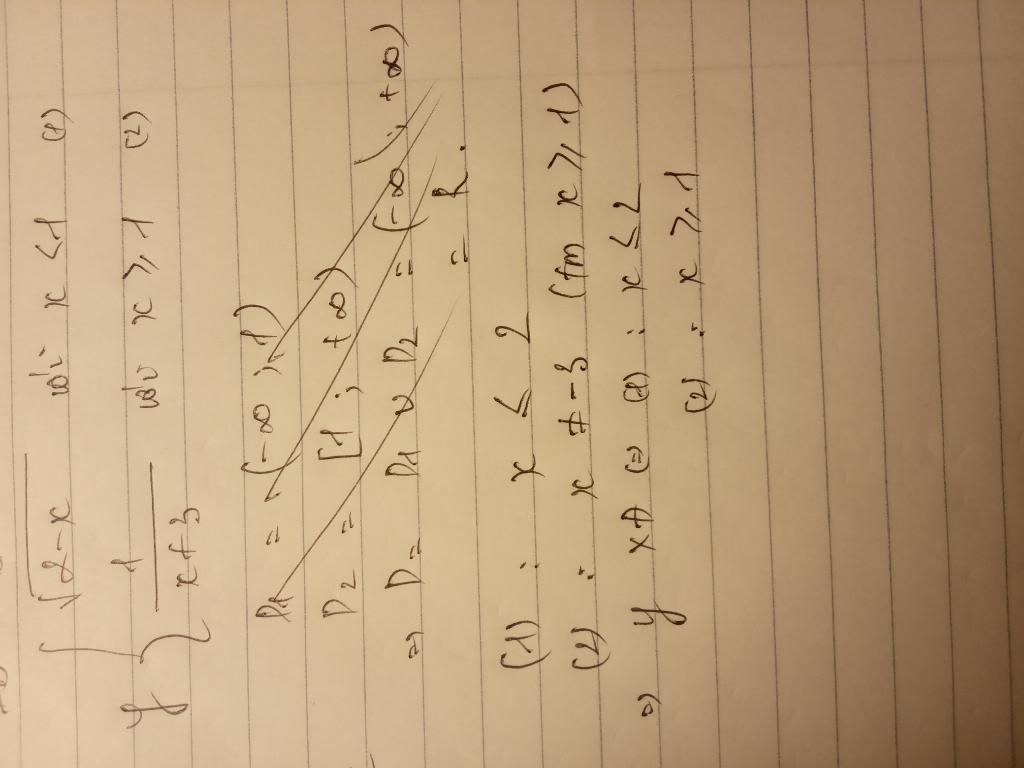 y = { √2-x với x < 1 (1)
1/(x+3) với x ≥ 1 (2)
D1 = (-∞ ; 1)
D2 = [1 ; +∞)
=> D = D1 ∪ D2 = (-∞ ; +∞)
= R.
(1) : x ≤ 2
(2) : x ≠ -3 (tm x ≥ 1)
=> y xđ <=> (1) : x ≤ 2
(2) : x ≥ 1